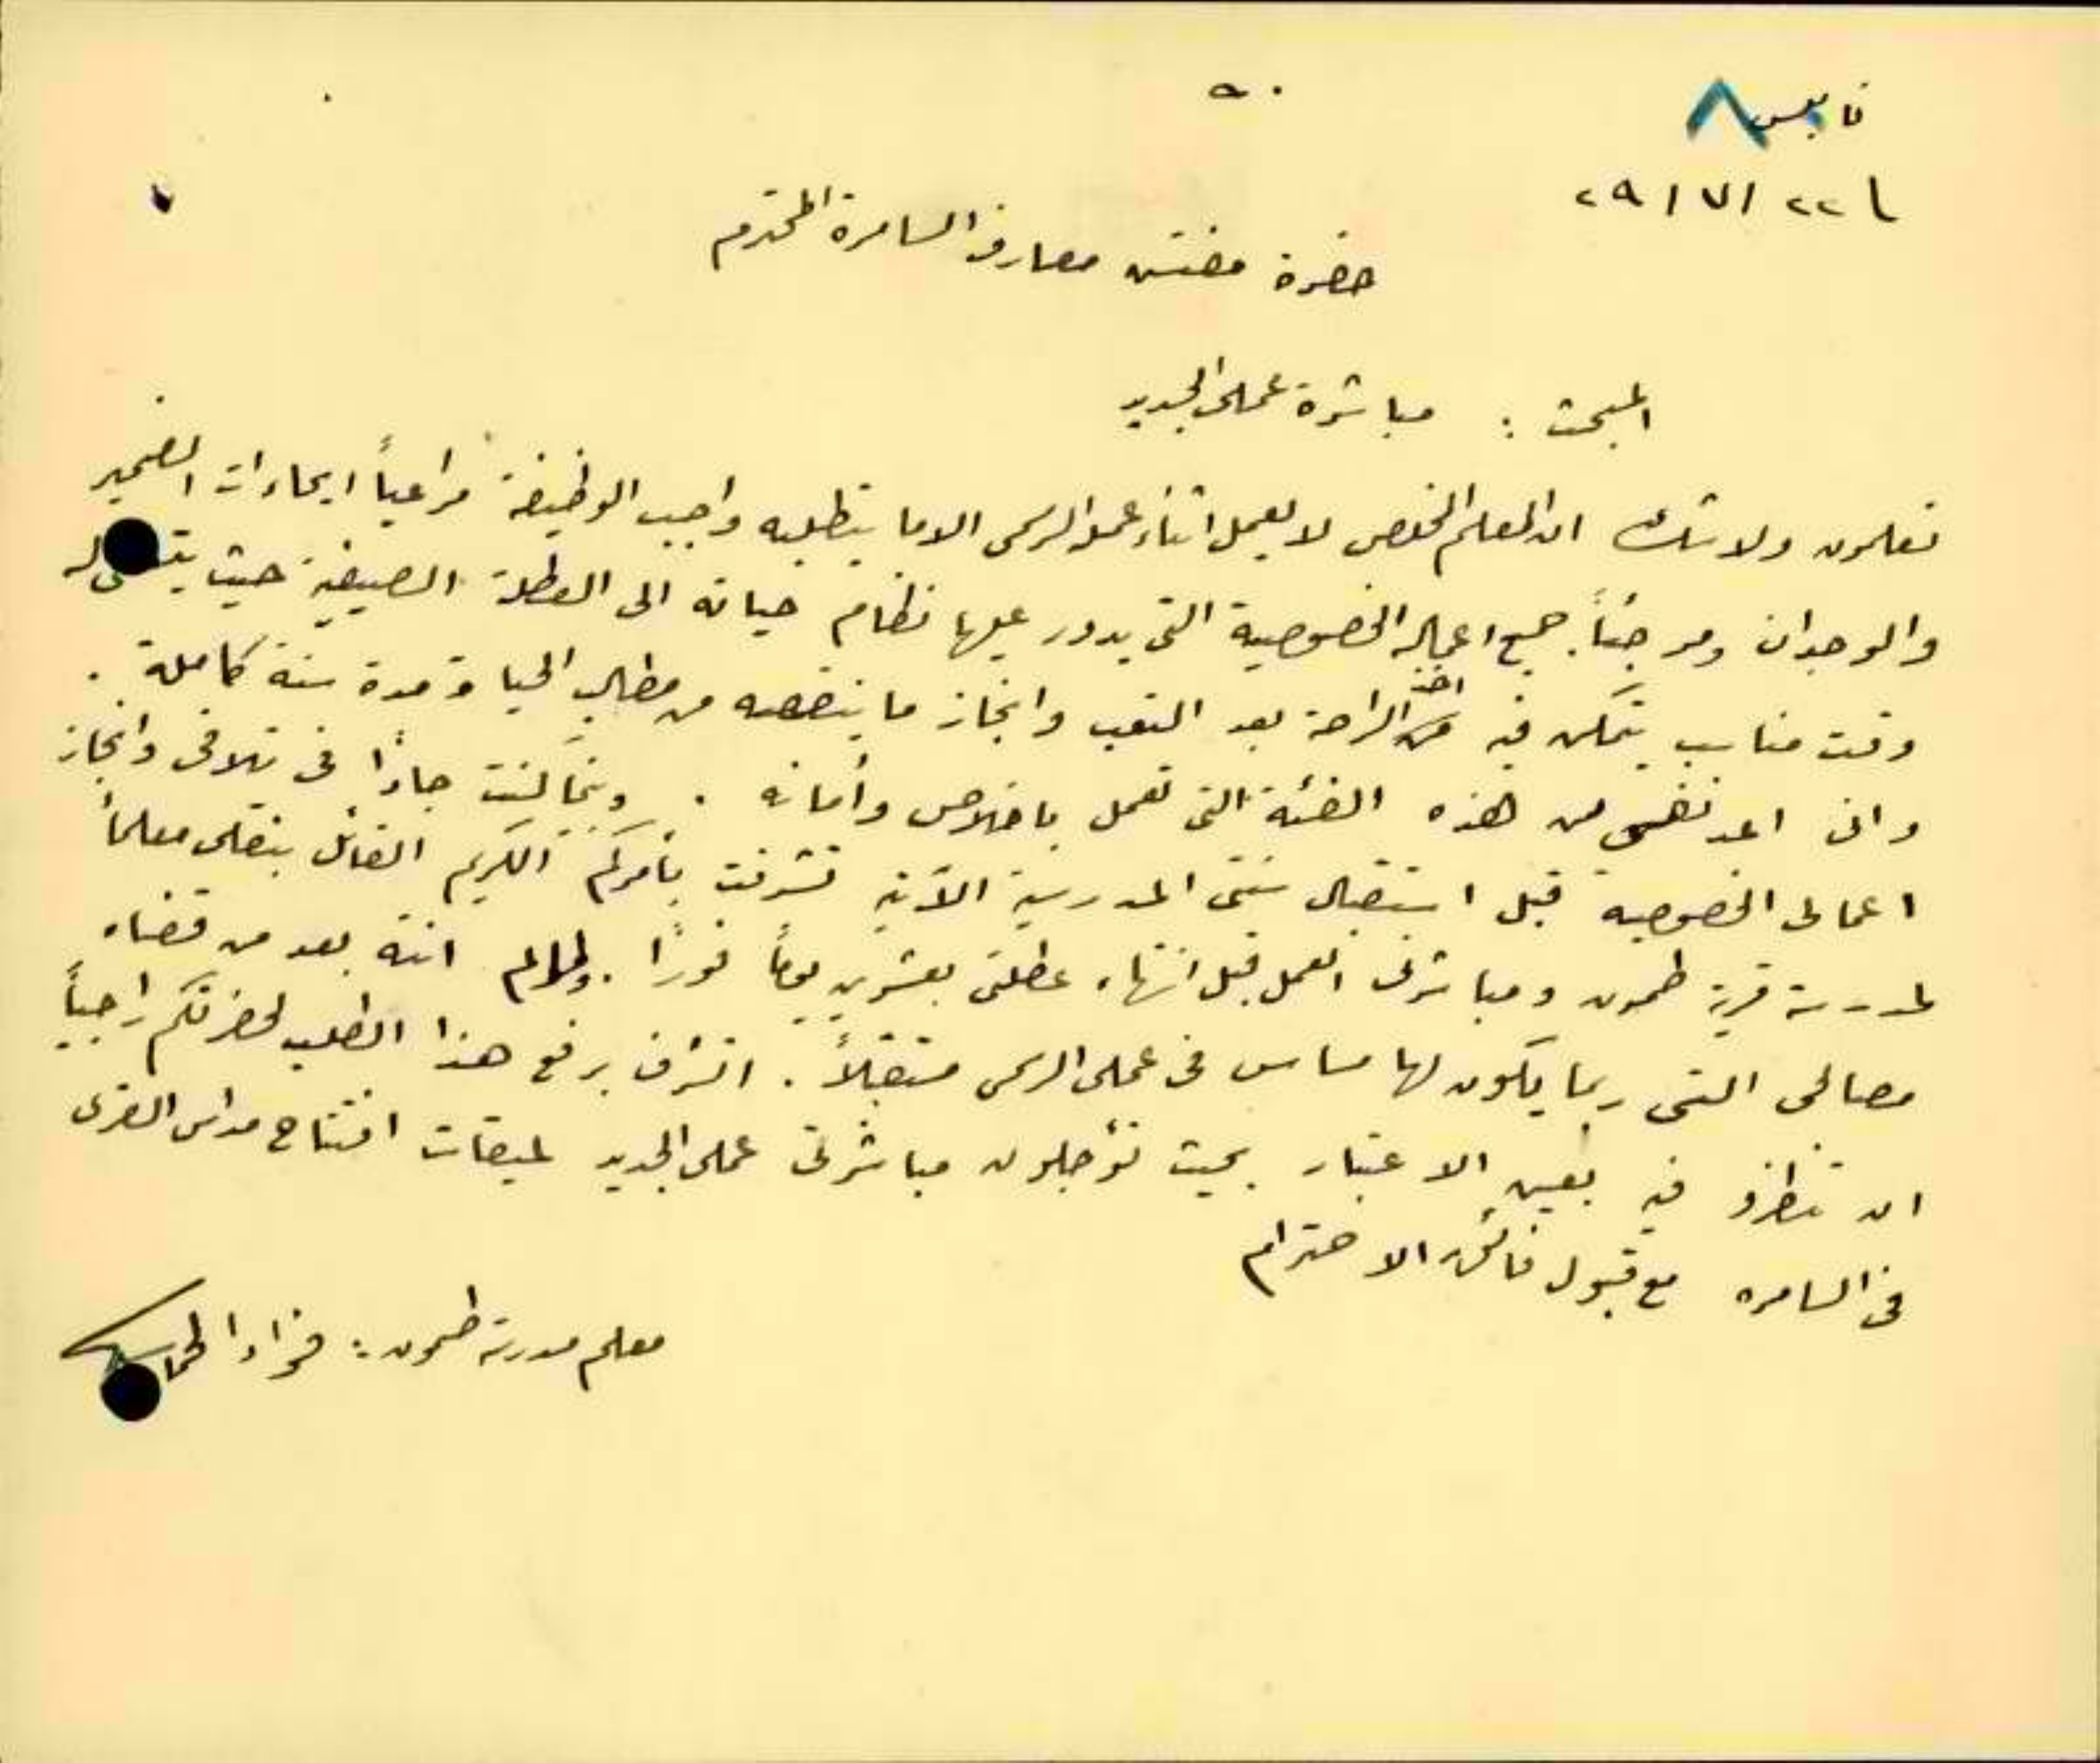 ٥٠
نابلس
٢٢ / ٧ / ٢٩
حضرة مفتش معارف السامرة المحترم
المبحث : مباشرة عملي الجديد
تعلمون ولا شك ان المعلم المخلص لا يعمل اثناء عمله الرسمي الا ما يتطلبه واجب الوظيفة مراعياً ايحاءات الضمير
والوجدان ومرجئاً جميع اعماله الخصوصية التي يدور عليها نظام حياته الى العطلة الصيفية حيث له
وقت مناسب يتمكن فيه من اخذ الراحة بعد التعب وانجاز ما ينقصه من مطاليب الحياة مدة سنة كاملة .
واني اعد نفسي من هذه الفئة التي تعمل باخلاص وأمانه . وبينما كنت جاداً في تلافي وانجاز
اعمالي الخصوصية قبل استقبال سنتي المدرسية الآتية تشرفت بأمركم الكريم القائل بنقلي معلماً
لمدرسة قرية طمون ومباشرتي العمل قبل انتهاء عطلتي بعشرين يوماً فوراً . ولما لم انته بعد من قضاء
مصالحي التي ربما يكون لها مساس في عملي الرسمي مستقبلاً . اتشرف برفع هذا الطلب لحضرتكم راجياً
ان تنظرو فيه بعين الاعتبار بحيث تؤجلون مباشرتي عملي الجديد لميقات افتتاح مدارس القرى
في السامره مع قبول فائق الاحترام
معلم مدرسة طمون : فؤاد